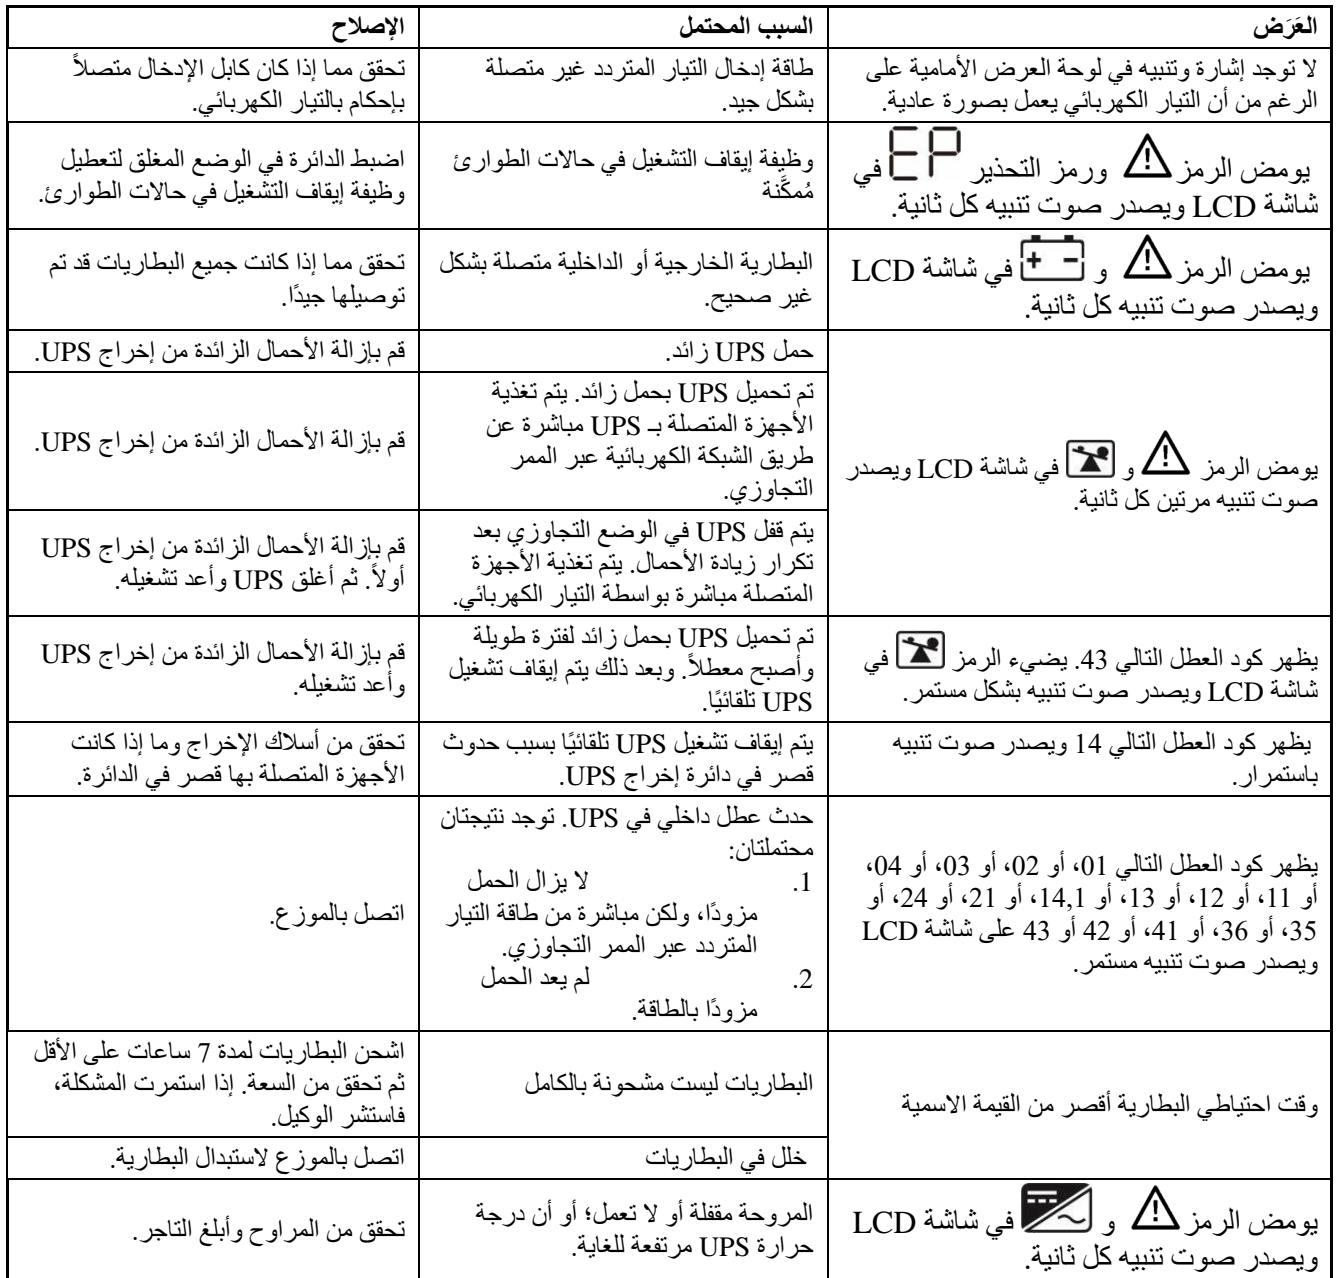 العَرَض
السبب المحتمل
الإصلاح
لا توجد إشارة وتنبيه في لوحة العرض الأمامية على
الرغم من أن التيار الكهربائي يعمل بصورة عادية.
طاقة إدخال التيار المتردد غير متصلة
بشكل جيد.
تحقق مما إذا كان كابل الإدخال متصلاً
بإحكام بالتيار الكهربائي.
يومض الرمز ورمز التحذير EP في
شاشة LCD ويصدر صوت تنبيه كل ثانية.
وظيفة إيقاف التشغيل في حالات الطوارئ
مُمكَّنة
اضبط الدائرة في الوضع المغلق لتعطيل
وظيفة إيقاف التشغيل في حالات الطوارئ.
يومض الرمز و في شاشة LCD
ويصدر صوت تنبيه كل ثانية.
البطارية الخارجية أو الداخلية متصلة بشكل
غير صحيح.
تحقق مما إذا كانت جميع البطاريات قد تم
توصيلها جيدًا.
يومض الرمز و في شاشة LCD ويصدر
صوت تنبيه مرتين كل ثانية.
حمل UPS زائد.
قم بإزالة الأحمال الزائدة من إخراج UPS.
تم تحميل UPS بحمل زائد. يتم تغذية
الأجهزة المتصلة بـ UPS مباشرة عن
طريق الشبكة الكهربائية عبر الممر
التجاوزي.
قم بإزالة الأحمال الزائدة من إخراج UPS.
يتم قفل UPS في الوضع التجاوزي بعد
تكرار زيادة الأحمال. يتم تغذية الأجهزة
المتصلة مباشرة بواسطة التيار الكهربائي.
قم بإزالة الأحمال الزائدة من إخراج UPS
أولاً. ثم أغلق UPS وأعد تشغيله.
يظهر كود العطل التالي 43. يضيء الرمز في
شاشة LCD ويصدر صوت تنبيه بشكل مستمر.
تم تحميل UPS بحمل زائد لفترة طويلة
وأصبح معطلاً. وبعد ذلك يتم إيقاف تشغيل
UPS تلقائيًا.
قم بإزالة الأحمال الزائدة من إخراج UPS
وأعد تشغيله.
يظهر كود العطل التالي 14 ويصدر صوت تنبيه
باستمرار.
يتم إيقاف تشغيل UPS تلقائيًا بسبب حدوث
قصر في دائرة إخراج UPS.
تحقق من أسلاك الإخراج وما إذا كانت
الأجهزة المتصلة بها قصر في الدائرة.
يظهر كود العطل التالي 01، أو 02، أو 03، أو 04،
أو 11، أو 12، أو 13، أو 14,1، أو 21، أو 24، أو
35، أو 36، أو 41، أو 42 أو 43 على شاشة LCD
ويصدر صوت تنبيه مستمر.
حدث عطل داخلي في UPS. توجد نتيجتان
محتملتان:
1. لا يزال الحمل
مزودًا، ولكن مباشرة من طاقة التيار
المتردد عبر الممر التجاوزي.
2. لم يعد الحمل
مزودًا بالطاقة.
اتصل بالموزع.
وقت احتياطي البطارية أقصر من القيمة الاسمية
البطاريات ليست مشحونة بالكامل
اشحن البطاريات لمدة 7 ساعات على الأقل
ثم تحقق من السعة. إذا استمرت المشكلة،
فاستشر الوكيل.
خلل في البطاريات
اتصل بالموزع لاستبدال البطارية.
يومض الرمز و في شاشة LCD
ويصدر صوت تنبيه كل ثانية.
المروحة مقفلة أو لا تعمل؛ أو أن درجة
حرارة UPS مرتفعة للغاية.
تحقق من المراوح وأبلغ التاجر.